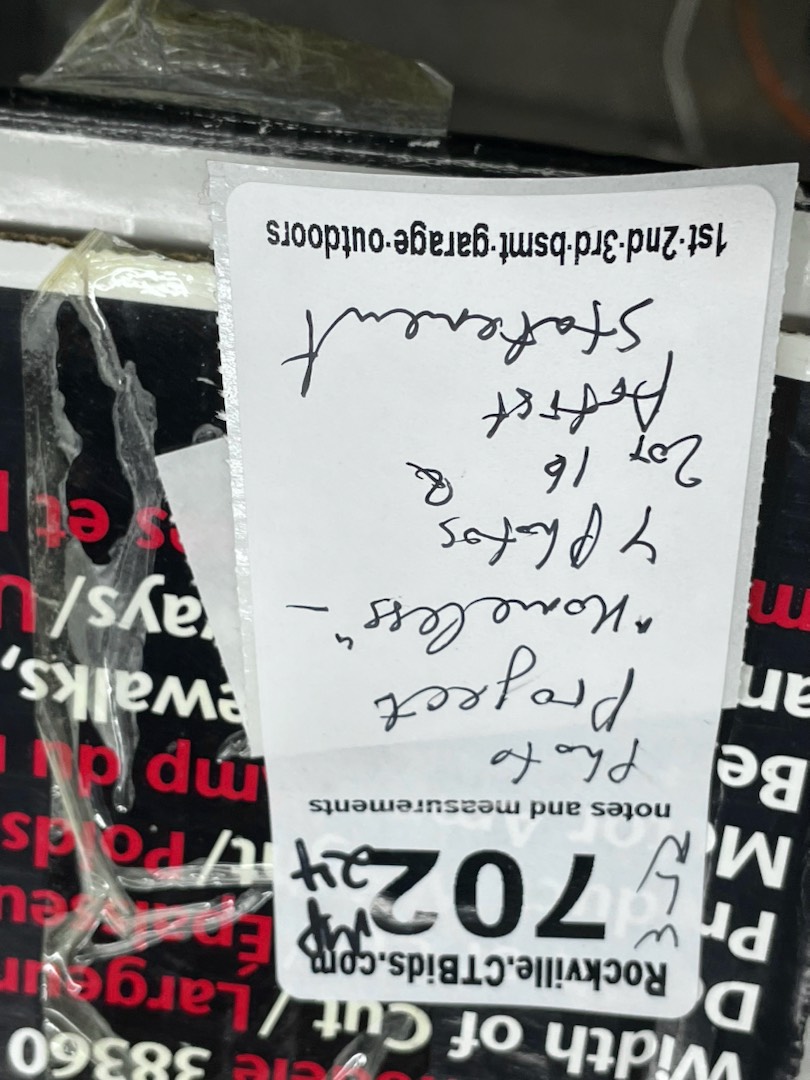 Rockville.CTBids.com
702
MP
24
notes and measurements
Photo
Project
"Homeless" -
4 Photos
2 of 16 &
Artist
Statement
1st·2nd·3rd·bsmt·garage·outdoors
38360
Width of Cut / Largeur
Épaisseur
/ Poids
amp du
ewalks,
ways / U
es et